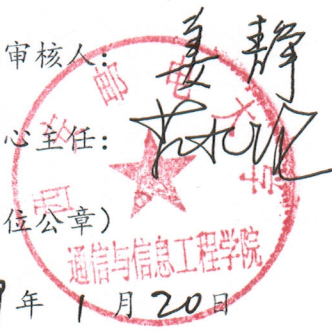 审核人：姜静
西安邮电大学
心主任：
位公章）
通信与信息工程学院
年1月20日